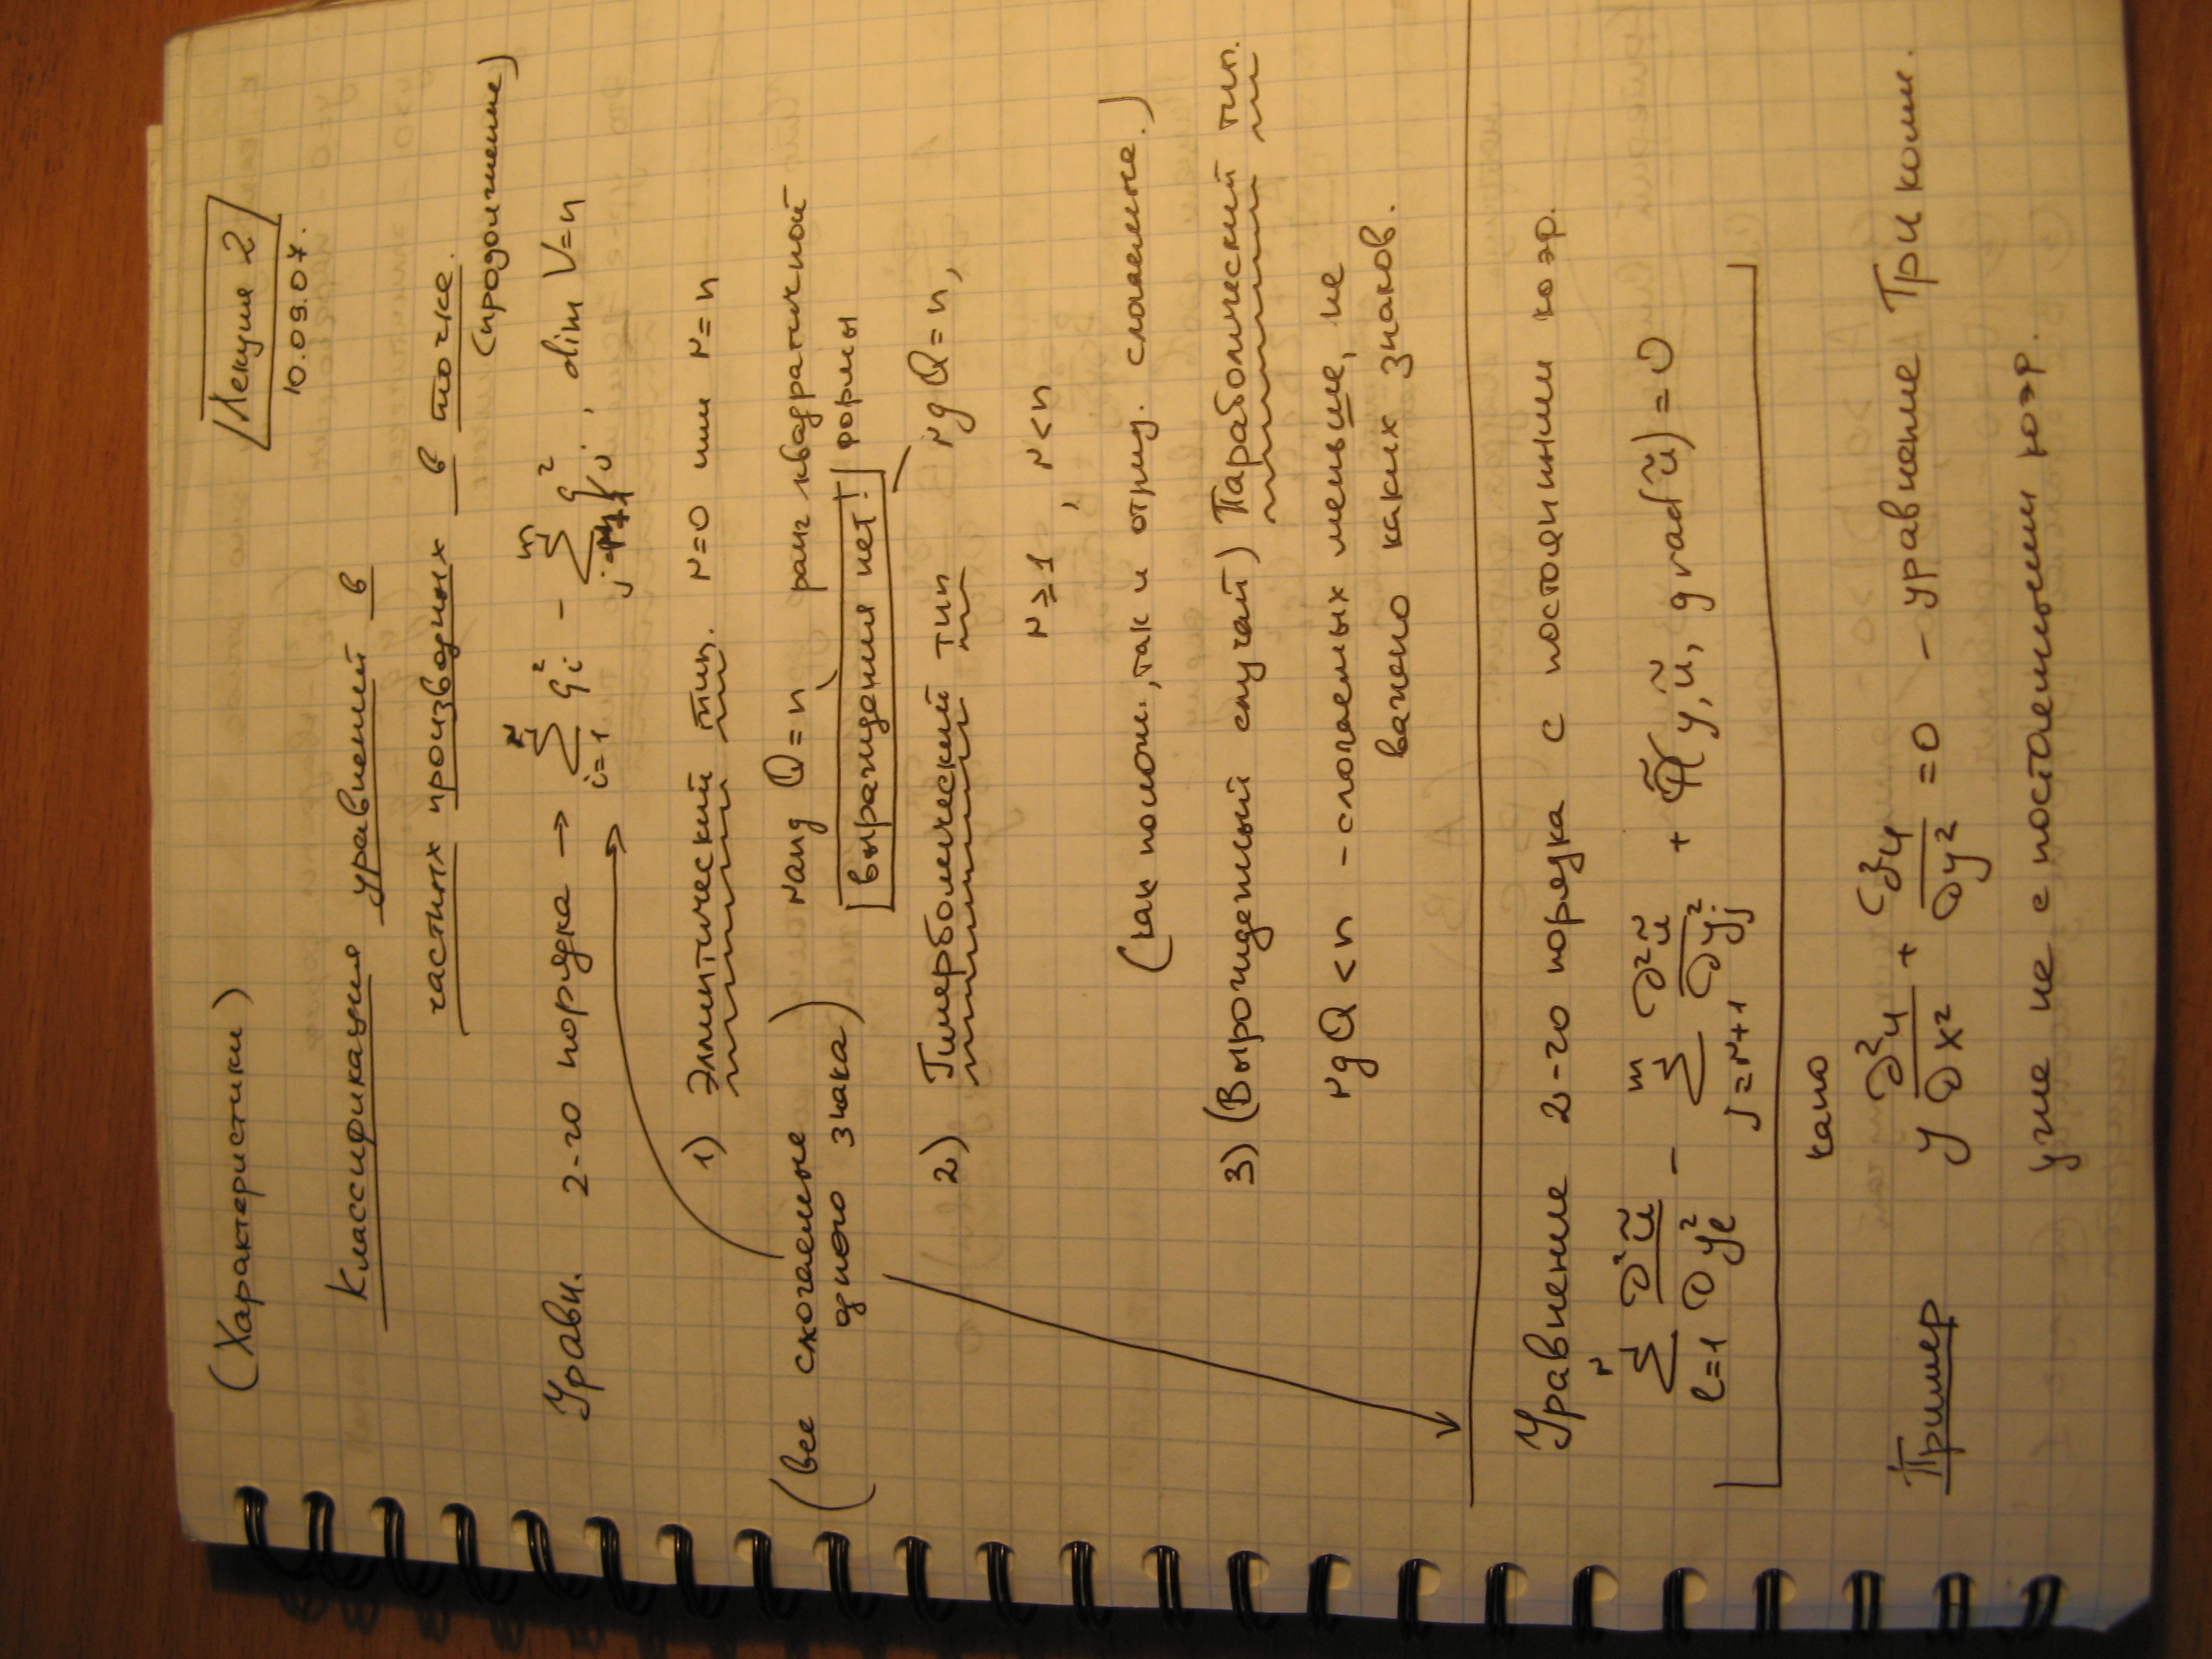 Лекция 2
(Характеристики) 10.09.07.
Классификация уравнений в
частных производных в точке.
(продолжение)
Уравн. 2-го порядка → ∑ᵢ₌₁ʳ qᵢ² - ∑ᵐ qⱼ², dim V=n
1) Эллиптический тип. r=0 или r=n
(все слогаемые одного знака) rang Q=n ранг квадратичной формы
вырождения нет!
2) Гиперболический тип rg Q=n,
r≥1, r<n
(как полож., так и отриц. слогаемые.)
3) (Вырожденный случай) Параболический тип.
rg Q < n - слогаемых меньше, не
важно каких знаков.
Уравнение 2-го порядка с постоянними коэф.
∑ₗ₌₁ʳ ∂²ũ/∂yₗ² - ∑ⱼ₌ᵣ₊₁ᵐ ∂²ũ/∂yⱼ² + (y, ũ, grad ũ) = 0
Пример y ∂²u/∂x² + ∂²u/∂y² = 0 - уравнение Трикоми.
уже не с постоянными коэф.